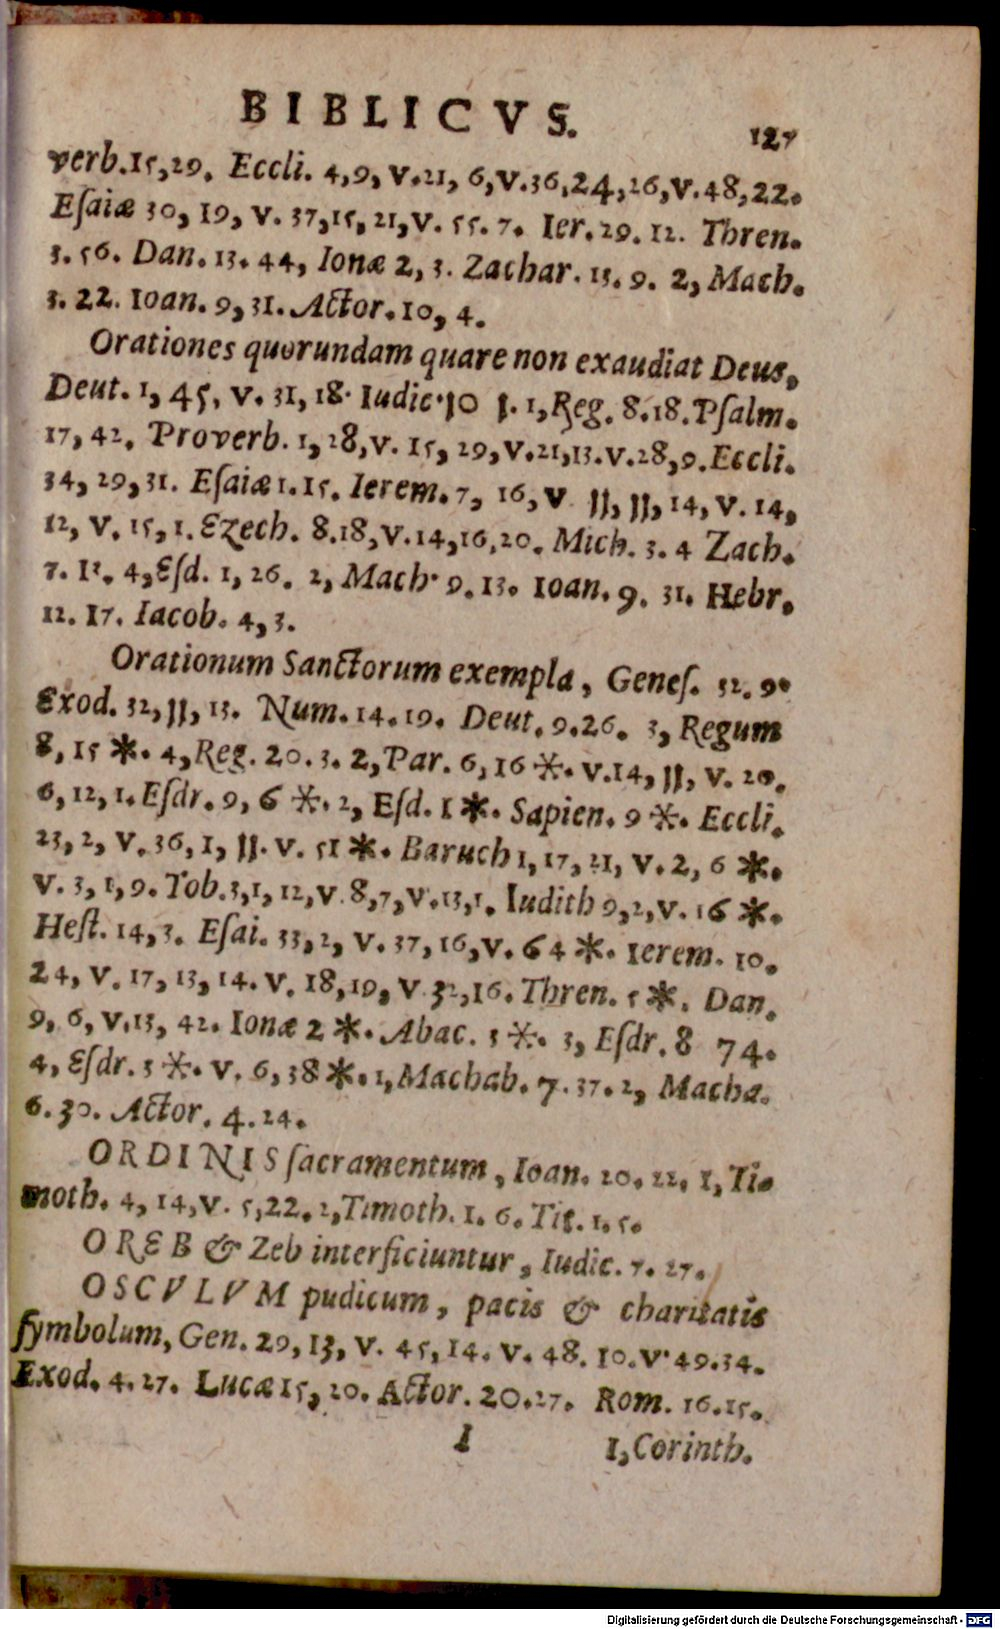 BIBLICVS. 127
verb.15,29. Eccli. 4,9, v.21, 6,v.36,24,26,v.48,22.
Eſaiæ 30, 19, v. 37,15, 21,v. 55. 7. Ier. 29. 12. Thren.
3. 56. Dan. 13. 44, Ionæ 2, 3. Zachar. 13. 9. 2, Mach.
3. 22. Ioan. 9, 31. Actor. 10, 4.
Orationes quorundam quare non exaudiat Deus,
Deut. 1, 45, v. 31, 18. Iudic. 10 1, Reg. 8. 18. Pſalm.
17, 42. Proverb. 1, 28,v. 15, 29, v.21,13.v.28,9. Eccli.
34, 29, 31. Eſaiæ 1. 15. Ierem. 7, 16, v 11, 11, 14, v. 14,
12, v. 15, 1. Ezech. 8.18,v.14,16,20. Mich. 3. 4 Zach.
7. 4, Eſd. 1, 26. 2, Mach. 9. 13. Ioan. 9. 31. Hebr.
12. 17. Iacob. 4, 3.
Orationum Sanctorum exempla, Geneſ. 32. 9.
Exod. 32, 11, 13. Num. 14. 19. Deut. 9. 26. 3, Regum
8, 15 *. 4, Reg. 20. 3. 2, Par. 6, 16 *. v.14, 11, v. 20.
6, 12, 1. Eſdr. 9, 6 *. 2, Eſd. 1 *. Sapien. 9 *. Eccli.
23, 2, v. 36, 1, 11. v. 51 *. Baruch 1, 17, 21, v. 2, 6 *.
v. 3, 1, 9. Tob. 3, 1, 12, v. 8,7, v.13,1. Iudith 9, 2, v. 16 *.
Heſt. 14, 3. Eſai. 33, 2, v. 37, 16, v. 64 *. Ierem. 10.
24, v. 17, 13, 14. v. 18,19, v 32,16. Thren. 5 *. Dan.
9, 6, v.13, 42. Ionæ 2 *. Abac. 3 *. 3, Eſdr. 8 74.
4, Eſdr. 3 *. v. 6, 38 *. 1, Machab. 7. 37. 2, Macha.
6. 30. Actor. 4. 24.
ORDINIS ſacramentum, Ioan. 20. 22. 1, Ti-
moth. 4, 14, v. 5,22. 2, Timoth. 1. 6. Tit. 1. 5.
OREB & Zeb interficiuntur, Iudic. 7. 27.
OSCVLVM pudicum, pacis & charitatis
ſymbolum, Gen. 29, 13, v. 45, 14. v. 48. 10. v. 49. 34.
Exod. 4. 27. Lucæ 15, 20. Actor. 20. 27. Rom. 16. 15.
I 1, Corinth.
Digitalisierung gefördert durch die Deutsche Forschungsgemeinschaft - DFG